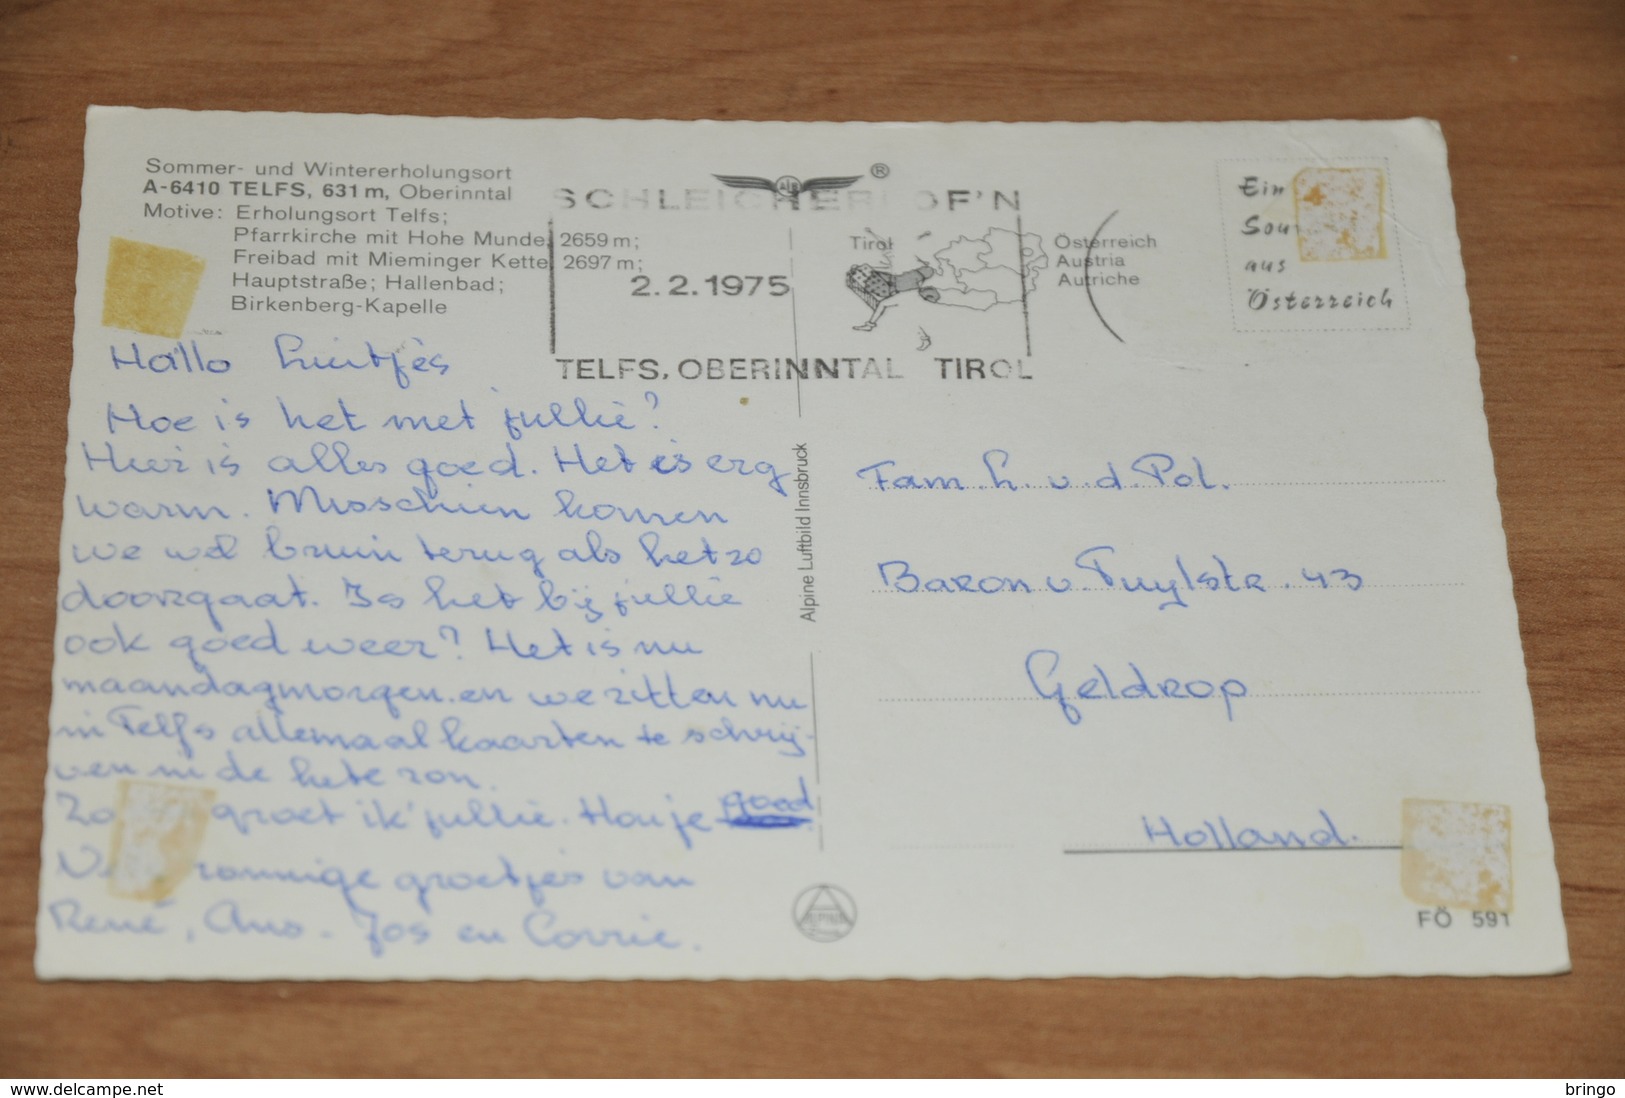 Sommer- und Wintererholungsort
A-6410 TELFS, 631 m, Oberinntal
Motive: Erholungsort Telfs;
Pfarrkirche mit Hohe Munde, 2659 m;
Freibad mit Mieminger Kette, 2697 m;
Hauptstraße; Hallenbad;
Birkenberg-Kapelle
Hallo luitjes
Hoe is het met jullie?
Hier is alles goed. Het is erg
warm. Misschien komen
we wel bruin terug als het zo
doorgaat. Is het bij jullie
ook goed weer? Het is nu
maandagmorgen en we zitten nu
in Telfs allemaal kaarten te schrij-
ven in de hete zon.
Zo groet ik jullie. Hou je goed
zonnige groetjes van
René, Ans. Jos en Corrie.
SCHLEICHERHOF'N
®
2.2.1975
TELFS, OBERINNTAL TIROL
Tirol
Österreich
Austria
Autriche
Alpine Luftbild Innsbruck
ALPINE
Ein
aus
Österreich
Fam. h. v. d. Pol.
Baron v. Tuylstr. 43
Geldrop
Holland.
FÖ 591
https://www.delcampe.net
bringo